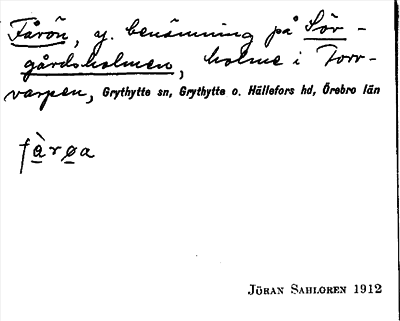 Fårön, y. benämning på Sör-
gårdsholmen, holme i Torr-
varpen, Grythytte sn, Grythytte o. Hällefors hd, Örebro län
fàrøa
JÖRAN SAHLGREN 1912